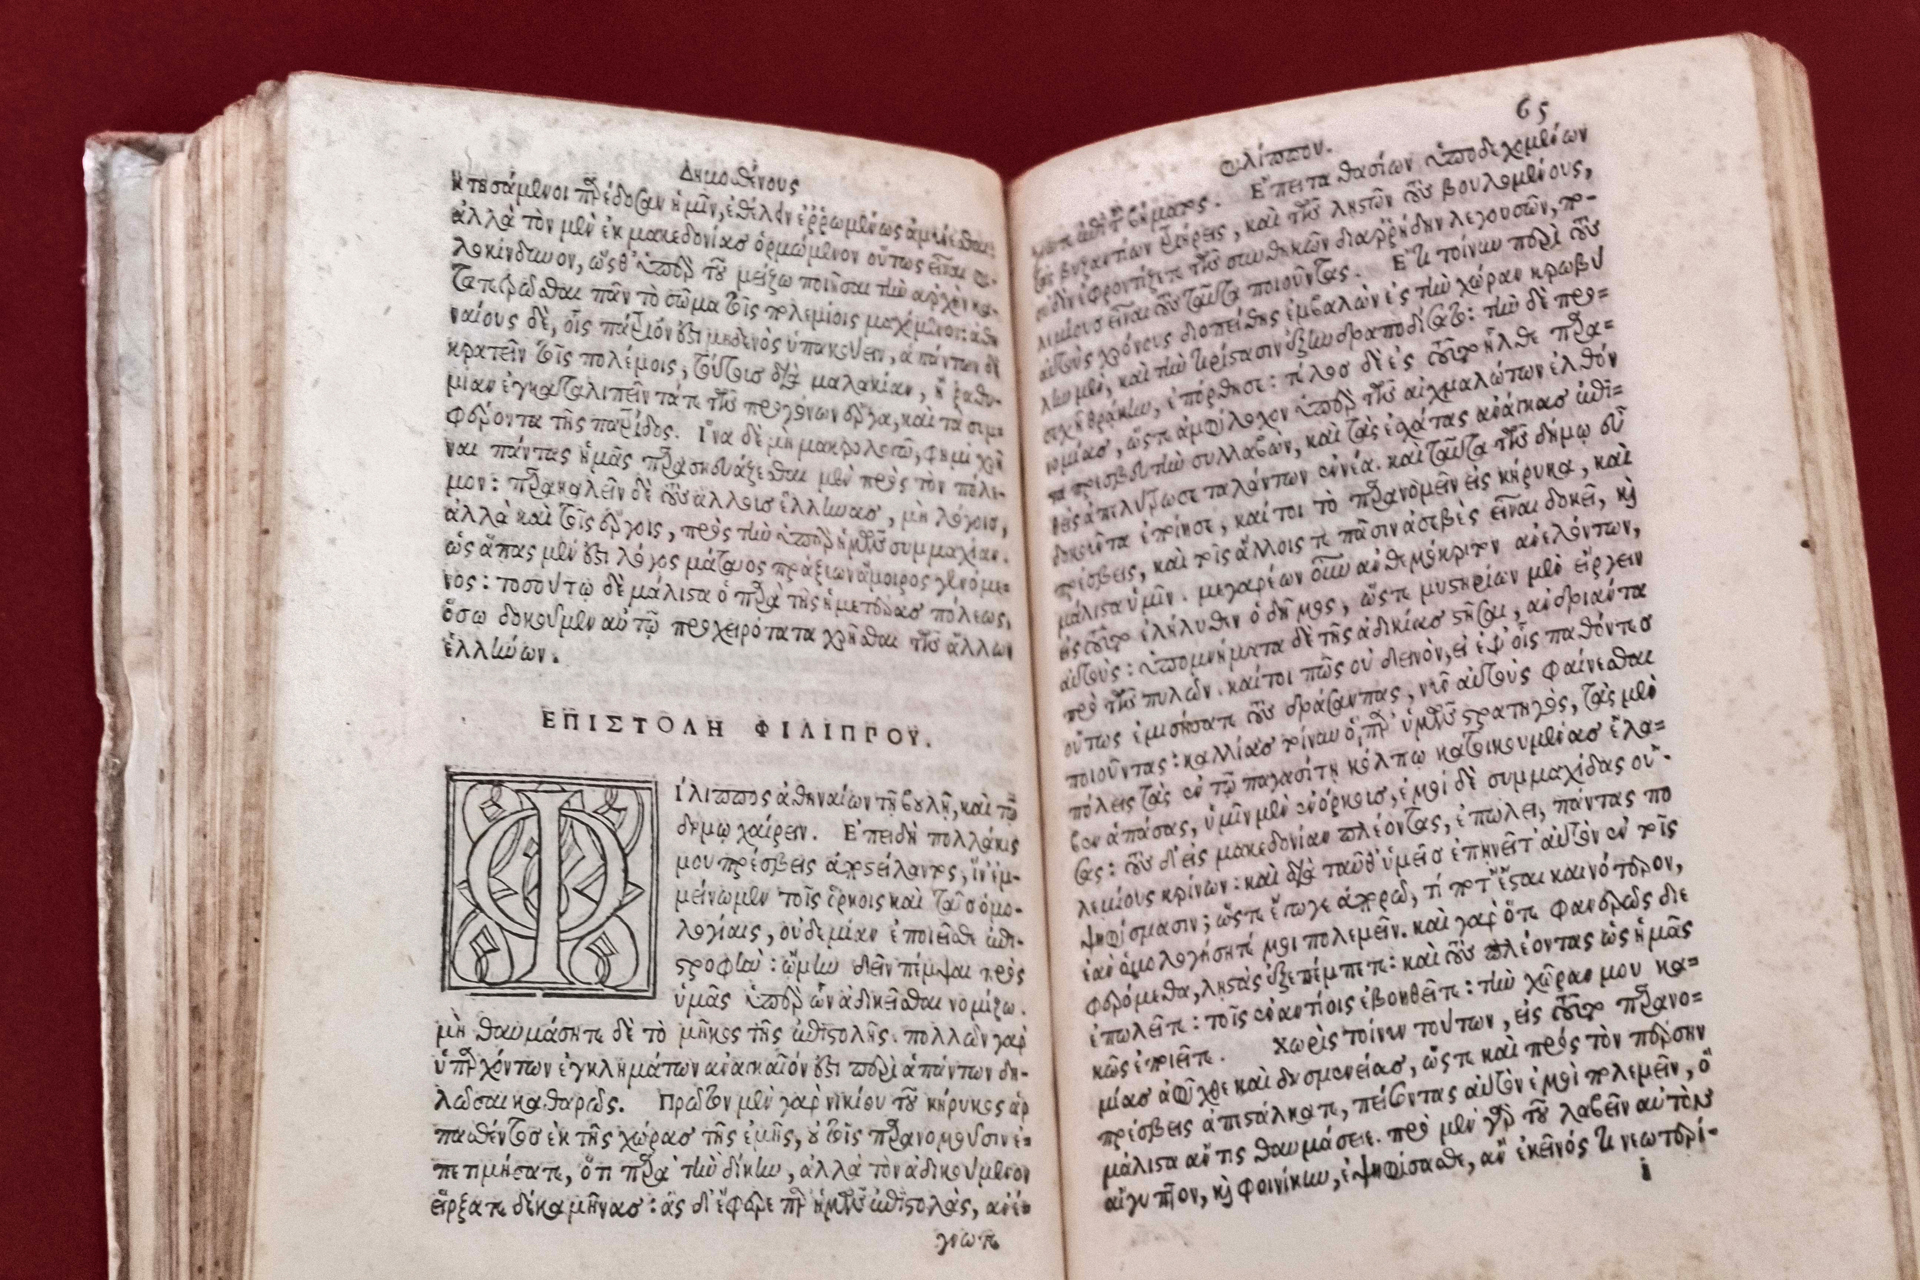 Δημοσθένους
κτησάμενοι παρέδοσαν ἡμῖν, ἐθέλειν ἐῤῥωμένως ἀμύνεσθαι:
ἀλλὰ τὸν μὲν ἐκ μακεδονίασ ὁρμώμενον οὕτως εἶναι φι-
λοκίνδυνον, ὥσθ' ὑπὲρ τοῦ μείζω ποιῆσαι τὴν ἀρχὴν κα-
τατετρῶσθαι πᾶν τὸ σῶμα τοῖς πολεμίοις μαχόμενον: ἀθη
ναίους δὲ, οἷς πάτριόν ἐστι μηδενὸς ὑπακούειν, ἁπάντων δὲ
κρατεῖν τοῖς πολέμοις, τούτουσ διὰ μαλακίαν, ἢ ῥαθυ-
μίαν ἐγκαταλιπεῖν τά τε τῶν προγόνων ἔργα, καὶ τὰ συμ=
φέροντα τῆς πατρίδος. Ἵνα δὲ μὴ μακρολογῶ, φημὶ χρῆ
ναι πάντας ἡμᾶς παρασκευάζεσθαι μὲν πρὸς τὸν πόλε-
μον: παρακαλεῖν δὲ τοὺς ἄλλουσ ἕλληνασ, μὴ λόγοισ,
ἀλλὰ καὶ τοῖς ἔργοις, πρὸς τὴν ὑπὲρ ἡμῶν συμμαχίαν.
ὡς ἅπας μέν ἐστι λόγος μάταιος πράξεων ἄμοιρος γενόμε=
νος: τοσούτῳ δὲ μάλιστα ὁ παρὰ τῆς ἡμετέρασ πόλεως,
ὅσῳ δοκοῦμεν αὐτῷ προχειρότατα χρῆσθαι τῶν ἄλλων
ἑλλήνων.
ΕΠΙΣΤΟΛΗ ΦΙΛΙΠΠΟΥ.
Φ ίλιππος ἀθηναίων τῇ βουλῇ, καὶ τῷ
δήμῳ χαίρειν. Ἐπειδὴ πολλάκις
μου πρέσβεις ἀποστείλαντος, ἵν' ἐμ-
μείνωμεν τοῖς ὅρκοις καὶ ταῖσ ὁμο-
λογίαις, οὐδεμίαν ἐποιεῖσθε ἐπι-
στροφὴν: ᾤμην δεῖν πέμψαι πρὸς
ὑμᾶς ὑπὲρ ὧν ἀδικεῖσθαι νομίζω.
μὴ θαυμάσητε δὲ τὸ μῆκος τῆς ἐπιστολῆς. πολλῶν γὰρ
ὑπαρχόντων ἐγκλημάτων ἀναγκαῖόν ἐστι περὶ ἁπάντων δη-
λῶσαι καθαρῶς. Πρῶτον μὲν γὰρ νικίου τοῦ κήρυκος ἁρ
πασθέντοσ ἐκ τῆς χώρασ τῆς ἐμῆς, οὐ τοῖς παρανομοῦσιν ἐ=
πετιμήσατε, ὅτι παρὰ τὴν δίκην, ἀλλὰ τὸν ἀδικούμενον
εἵρξατε δέκα μῆνασ: ἃς δ' ἔφερε παρ' ἡμῶν ἐπιστολὰς, ἀνέ=
γνωτε
Φιλίππου.
65
Ἔπειτα θασίων ὑποδεχομένων
τὰς βυζαντίων τριήρεις, καὶ τῶν λῃστῶν τοὺς βουλομένους,
οὐδὲν ἐφροντίζετε τῶν συνθηκῶν διαῤῥήδην λεγουσῶν, πο-
λεμίουσ εἶναι τοὺς ταῦτα ποιοῦντας. Ἔτι τοίνυν περὶ τοὺς
αὐτοὺς χρόνους διοπείθης ἐμβαλὼν εἰς τὴν χώραν κρωβύ
λην μὲν, καὶ τὴν τιρίστασιν ἐξηνδραποδίσατο: τὴν δὲ προσ=
εχῆ θρᾴκην, ἐπόρθησε: τέλοσ δὲ εἰς τοῦτο ἦλθε παρα=
νομίασ, ὥστε ἀμφίλοχον ὑπὲρ τῶν αἰχμαλώτων ἐλθόν
τα πρεσβευτὴν συλλαβὼν, καὶ τὰς ἐσχάτας ἀνάγκασ ἐπι=
θεὶς ἀπελύτρωσε ταλάντων ἐννέα. καὶ ταῦτα τῷ δήμῳ συν
δοκοῦντα ἐποίησε, καίτοι τὸ παρανομεῖν εἰς κήρυκα, καὶ
πρέσβεις, καὶ τοῖς ἄλλοις τε πᾶσιν ἀσεβὲς εἶναι δοκεῖ, καὶ
μάλιστα ὑμῖν. μεγαρέων οὖν ἀνθεμόκριτον ἀνελόντων,
εἰς τοῦτο ἐλήλυθεν ὁ δῆμος, ὥστε μυστηρίων μὲν εἴργειν
αὐτοὺς: ὑπομνήματα δὲ τῆς ἀδικίασ στῆσαι, ἀνδριάντα
πρὸ τῶν πυλῶν. καίτοι πῶς οὐ δεινὸν, εἰ ἐφ' οἷς παθόντεσ
οὕτως ἐμισήσατε τοὺς δράσαντας, νῦν αὐτοὺς φαίνεσθαι
ποιοῦντας: καλλίασ τοίνυν ὁ παρ' ὑμῶν στρατηγὸς, τὰς μὲν
πόλεις τὰς ἐν τῷ παγασίτῃ κόλπῳ κατοικουμένασ ἔλα=
βεν ἁπάσας, ὑμῖν μὲν ἐνόρκουσ, ἐμοὶ δὲ συμμαχίδας οὔ-
σας: τοὺς δ' εἰς μακεδονίαν πλέοντας, ἐπώλει, πάντας πο
λεμίους κρίνων: καὶ διὰ ταῦθ' ὑμεῖσ ἐπῃνεῖτ' αὐτὸν ἐν τοῖς
ψηφίσμασιν; ὥστε ἔγωγε ἀπορῶ, τί ποτ' ἔσται καινότερον,
ἐὰν ὁμολογήσητέ μοι πολεμεῖν. καὶ γὰρ ὅτε φανερῶς διε
φερόμεθα, λῃστὰς ἐξεπέμπετε: καὶ τοὺς πλέοντας ὡς ἡμᾶς
ἐπωλεῖτε: τοῖς ἐναντίοις ἐβοηθεῖτε: τὴν χώραν μου κα=
κῶς ἐποιεῖτε. Χωρὶς τοίνυν τούτων, εἰς τοῦτο παρανο=
μίασ ἀφῖχθε καὶ δυσμενείασ, ὥστε καὶ πρὸς τὸν πέρσην
πρέσβεις ἀπεστάλκατε, πείσοντας αὐτὸν ἐμοὶ πολεμεῖν, ὃ
μάλιστα ἄν τις θαυμάσειε. πρὸ μὲν γὰρ τοῦ λαβεῖν αὐτὸν
αἴγυπτον, καὶ φοινίκην, ἐψηφίσασθε, ἂν ἐκεῖνός τι νεωτερί-
i